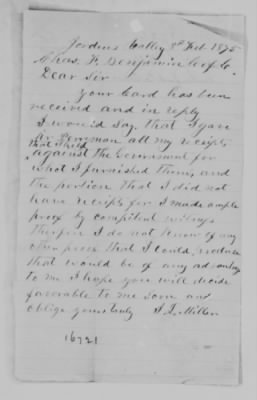 Valley 9th Feb. 1875
Chas. F. Benjamin
Dear Sir
your Card has been
received and in reply
I would say that I gave
Mr all my receipts
that I held
against the Government for
what I furnished them, and
the portion that I did not
have receipts for I made ample
proof by competent witness
I do not know of any
other proof that I could produce
that would be of any advantage
to me I hope you will decide
favorable to me soon and
oblige yours truly Miller
16721